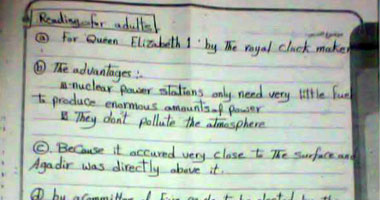 Reading for adults
(a) For Queen Elizabeth 1 by The royal clock maker
(b) The advantages:
nuclear power stations only need very little fuel
to produce enormous amounts of power
They don't pollute the atmosphere
(C). Because it accured very close to The surface and
Agadir was directly above it.
(d) by a committee of Five